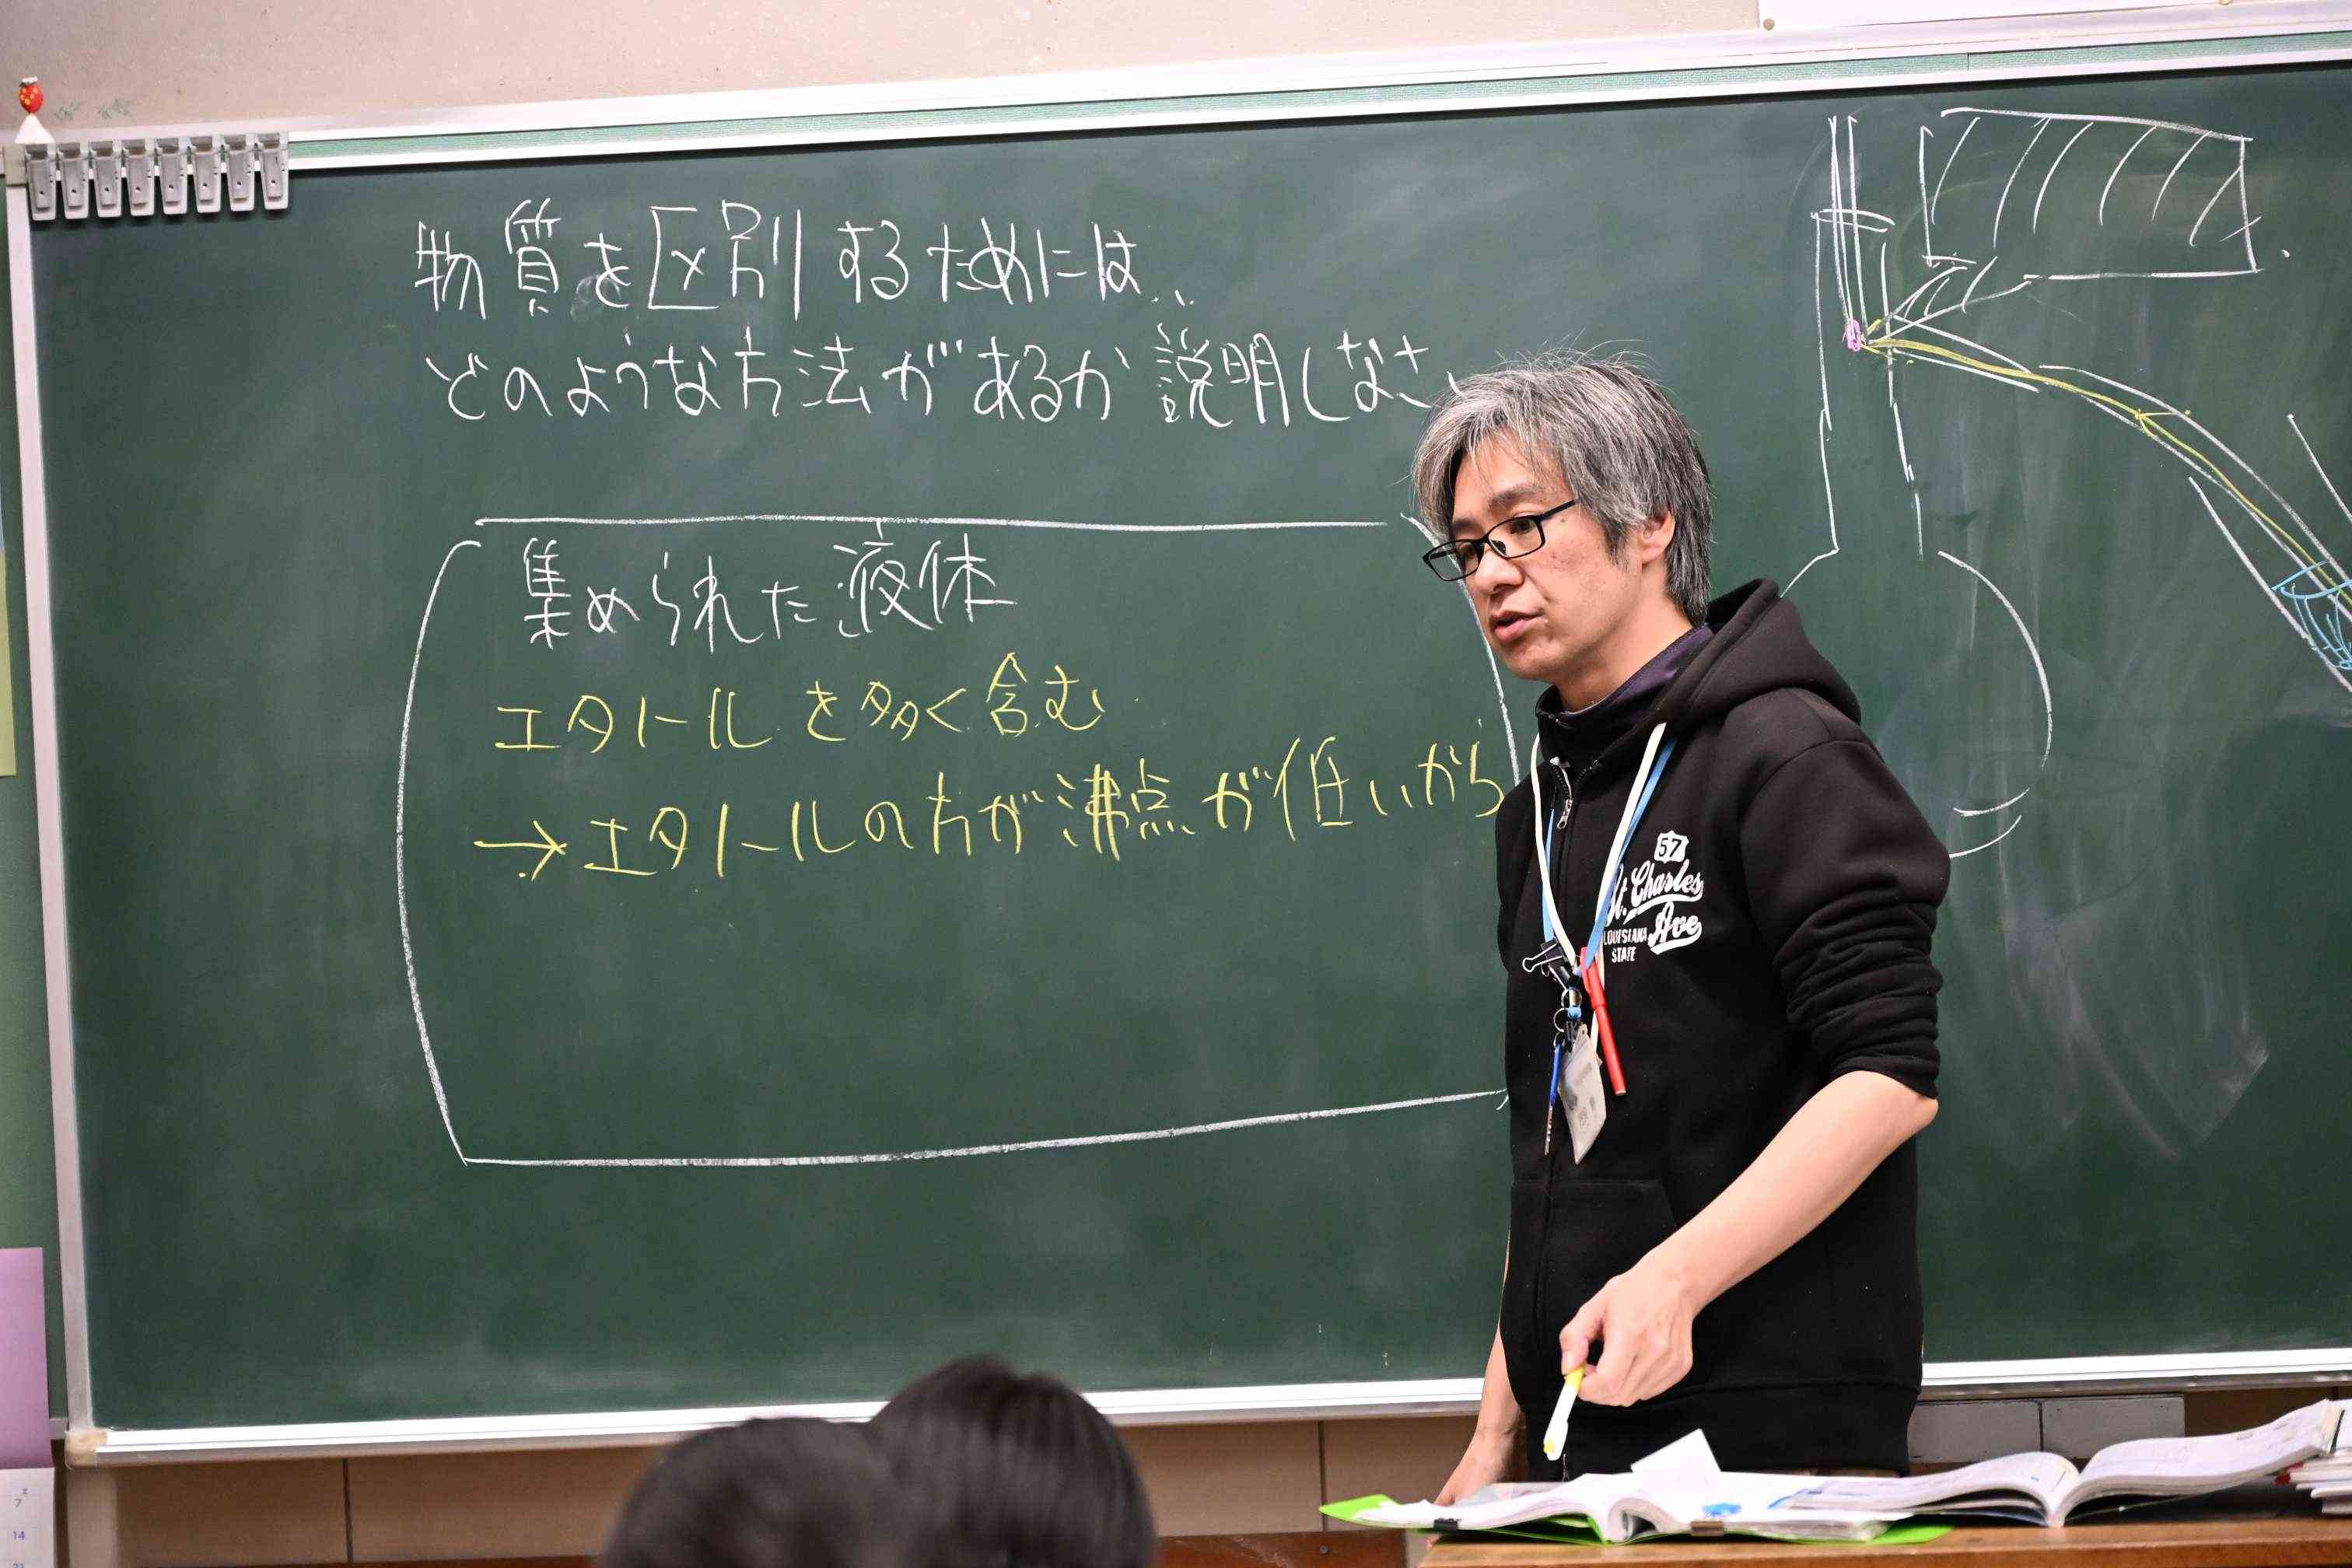 物質を区別するためには、
どのような方法があるか説明しなさ
集められた液体
エタトールを多く含む
→エタトールの方が沸点が低いから
57
St. Charles
Ave
LOUISIANA
STATE
7
14
21